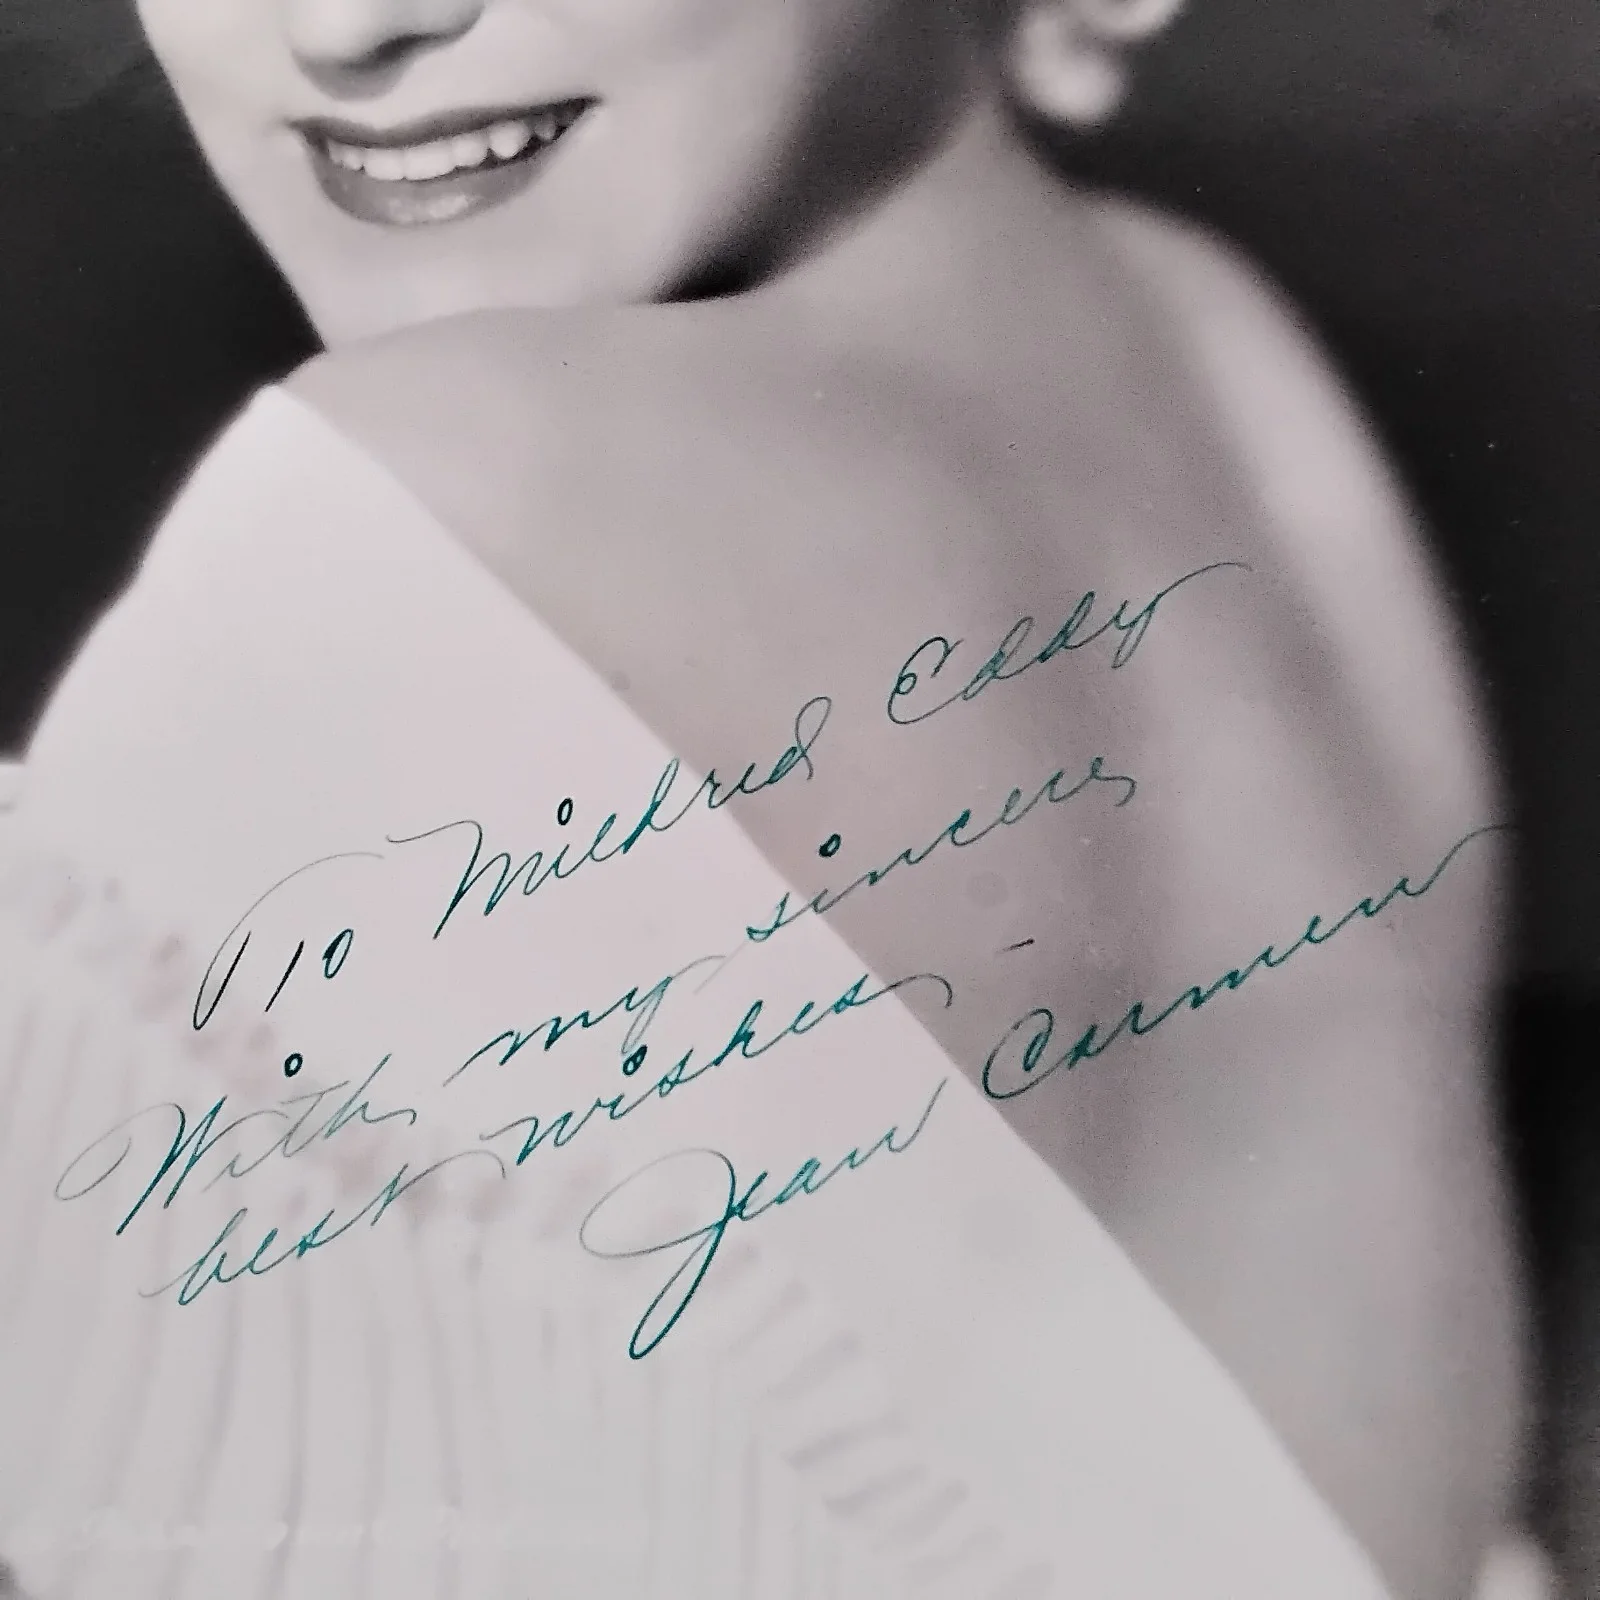 To Mildred Eddy
With my sincere
best wishes –
Jean Carmen